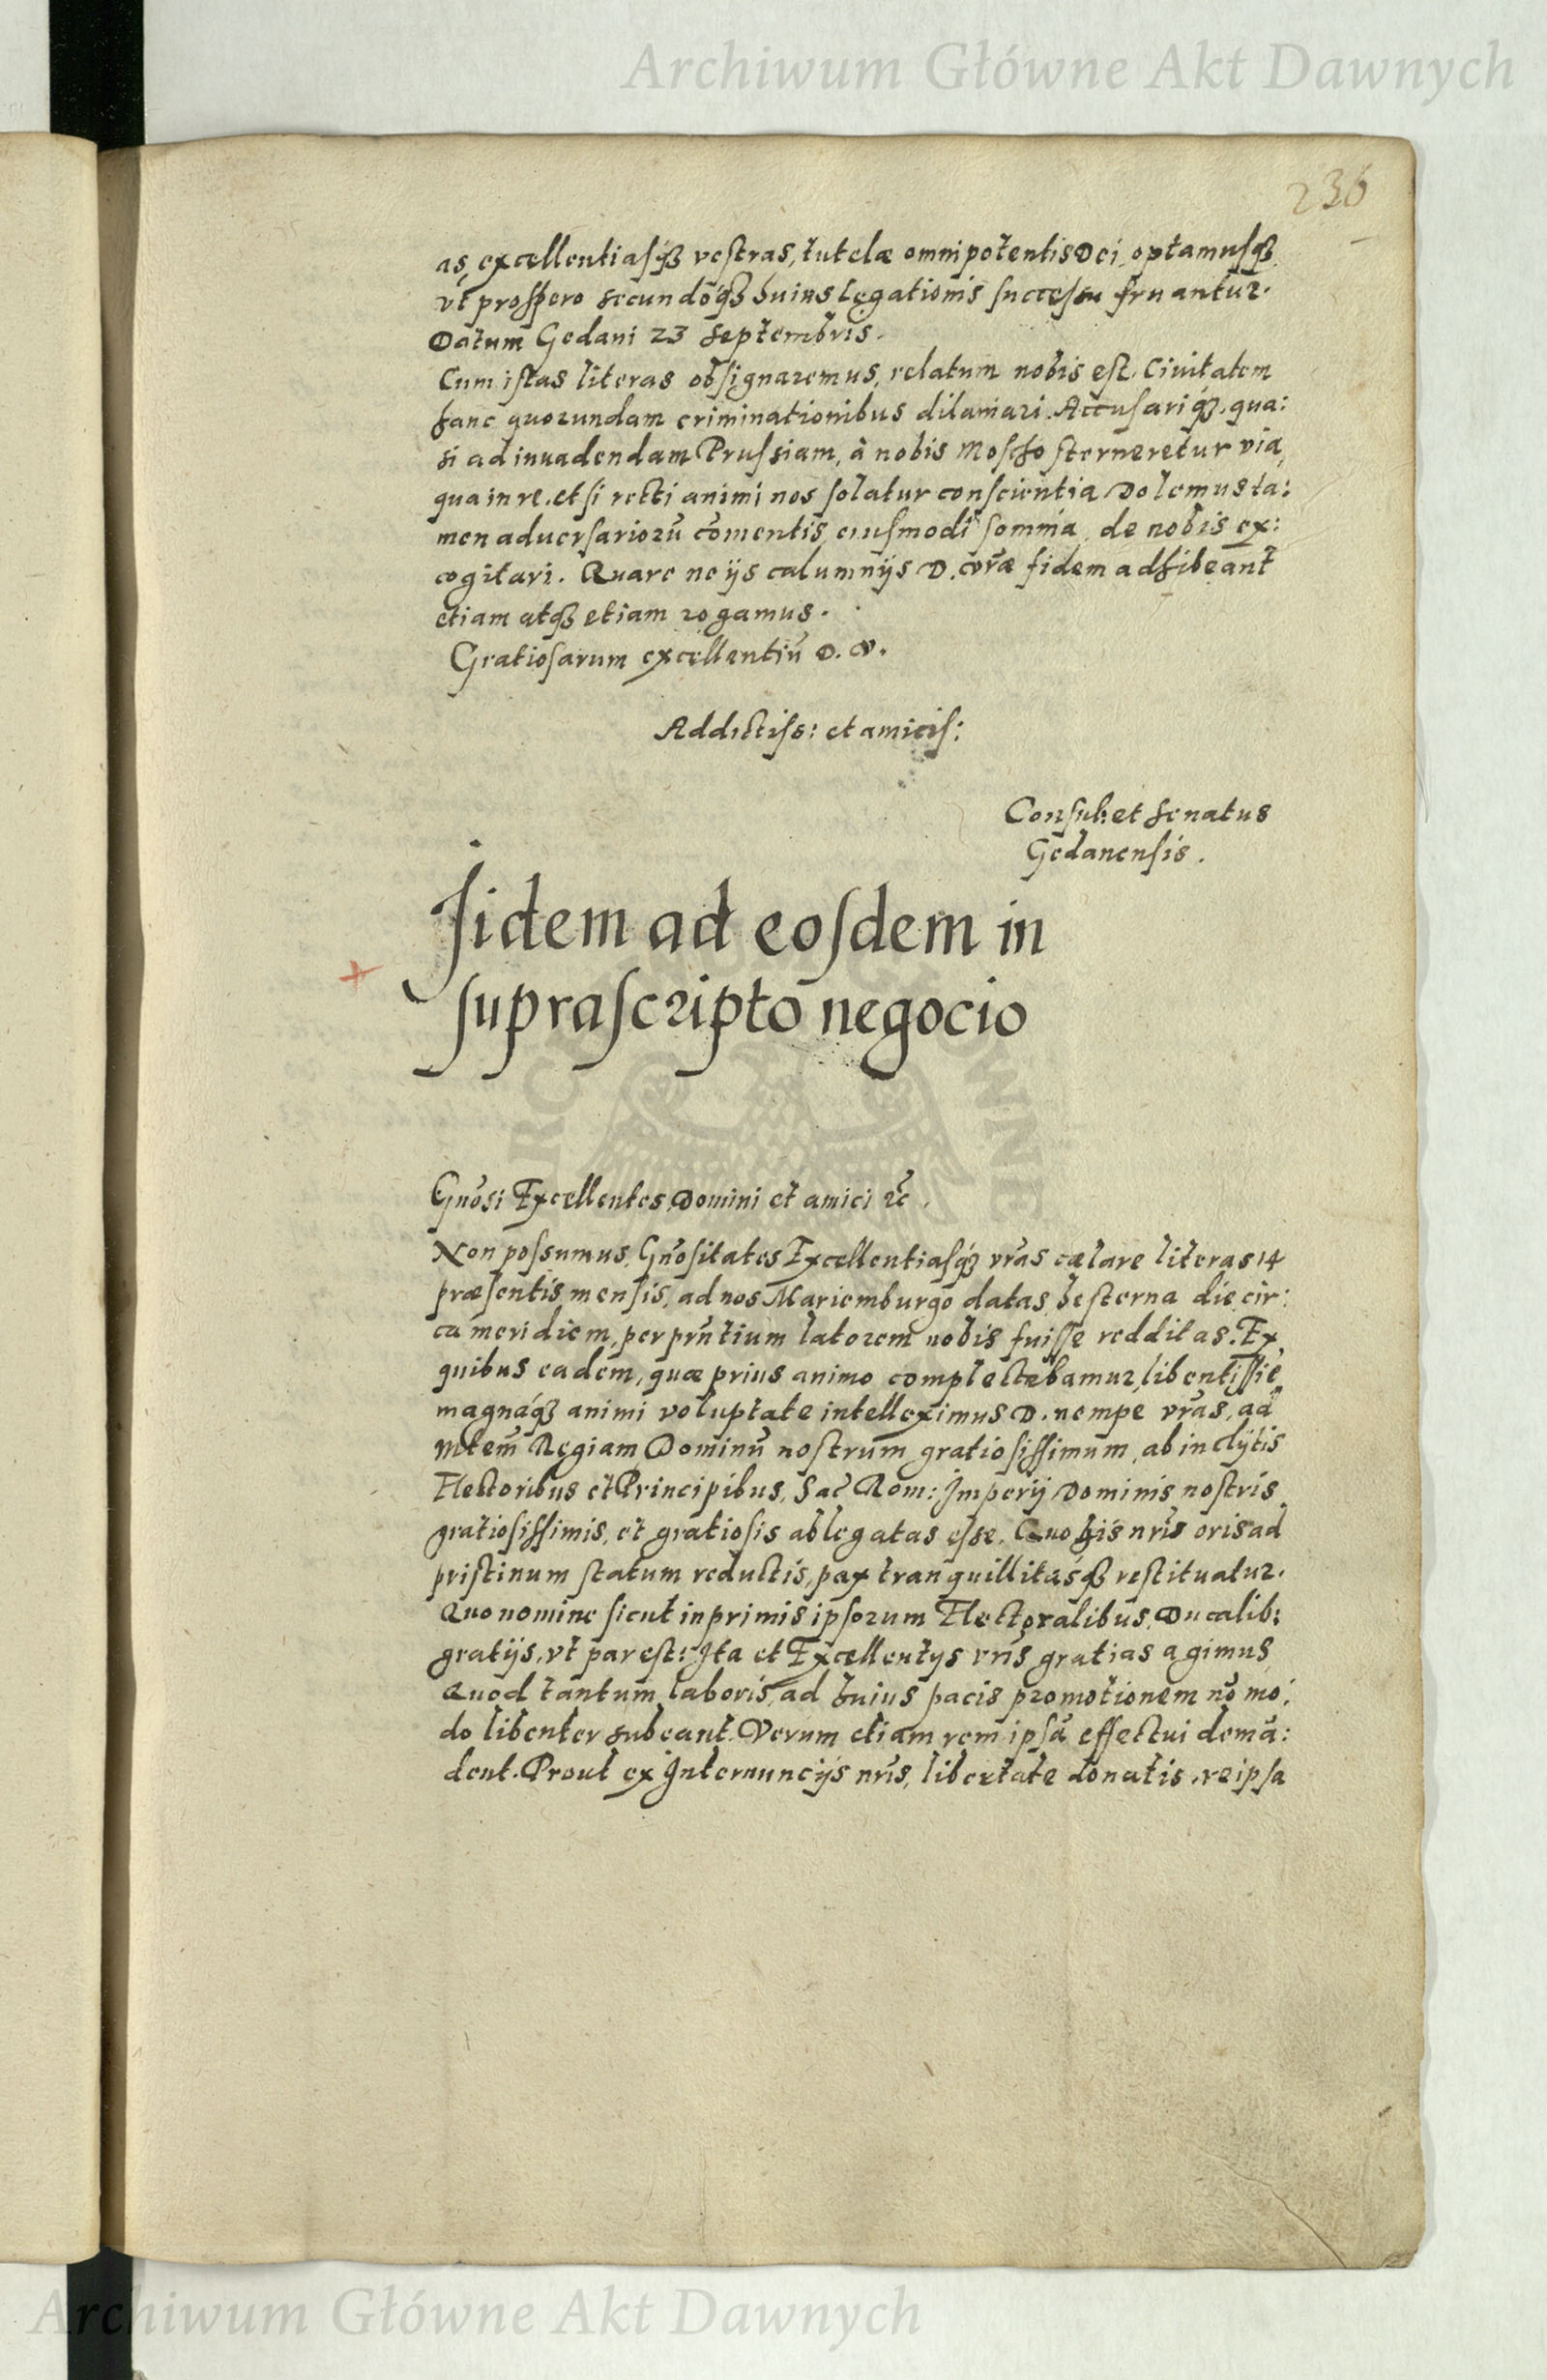 Archiwum Główne Akt Dawnych
236
as, excellentiasq́ꝫ vestras, tutelæ omnipotentis Dei, optamusqꝫ
vt prospero secundoq́ꝫ huius legationis successu fruantur.
Datum Gedani 23 Septembris.
Cum istas literas obsignaremus, relatum nobis est, Ciuitatem
hanc quorundam criminationibus dilaniari. Accusariqꝫ, qua:
si ad inuadendam Prussiam, à nobis Moscho sterneretur via,
qua in re, etsi recti animi nos solatur conscientia Dolemus ta:
men aduersariorū com̄entis, eiusmodi somnia, de nobis ex:
cogitari. Quare ne ijs calumnijs D. vr̄æ fidem adhibeant
etiam atqꝫ etiam rogamus.
Gratiosarum excellentiū D. V.
Addictiss: et amicis:
Consul: et Senatus
Gedanensis.
Iidem ad eosdem in
suprascripto negocio
Gnōsi Excellentes Domini et amici ꝛc̄.
Non possumus, Gnōsitates Excellentiasq́ꝫ vrās cælare literas 14
præsentis mensis, ad nos Mariemburgo datas hesterna die cir:
ca meridiem, per prn̄tium latorem nobis fuisse redditas. Ex
quibus eadem, quæ prius animo complectebamur, libentissie
magnáqꝫ animi voluptate intelleximus D. nempe vrās, ad
Mtem̄ Regiam Dominū nostrum gratiosissimum, ab inclÿtis
Electoribus et Principibus, Sac̄ Rom: Imperij Dominis nostris
gratiosissimis, et gratiosis ablegatas esse. Quo his nrīs oris ad
pristinum statum reductis, pax tranquillitasq́ꝫ restituatur.
Quo nomine sicut inprimis ipsorum Electoralibus, Ducalib:
gratijs, vt par est: Ita et Excellentijs vrīs gratias agimus
Quod tantum laboris, ad huius pacis promotionem nō mo:
do libenter subeant. Verum etiam rem ipsā effectui demā:
dent. Prout ex Internuncijs nrīs, libertate donatis, reipsa
Archiwum Główne Akt Dawnych